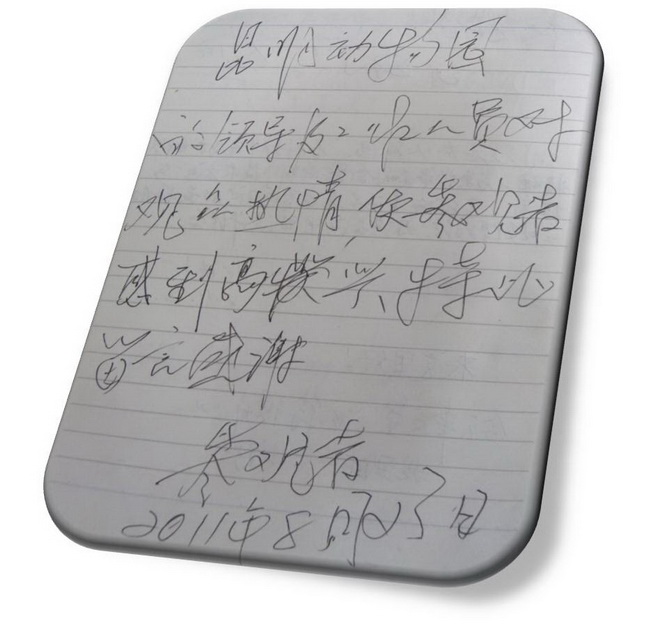 昆明动物园
的领导及工作人员对
观众热情使参观者
感到高兴特此
留言感谢
参观者
2011年8月23日